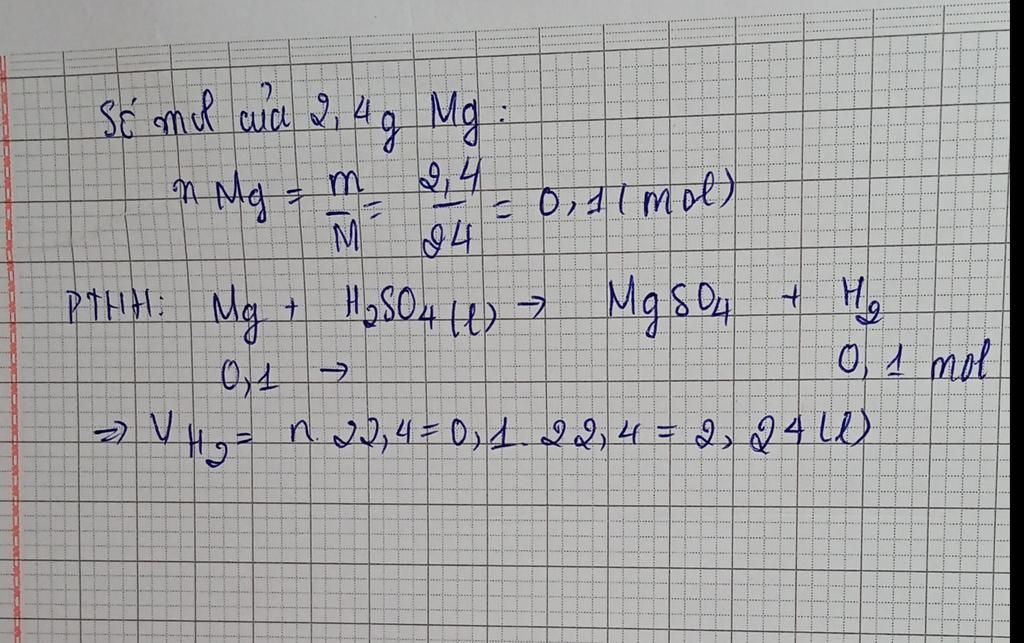 Số mol của 2,4g Mg:
n Mg = m/M = 2,4/24 = 0,1 (mol)
PTHH: Mg + H₂SO₄ (l) → MgSO₄ + H₂
0,1 → 0,1 mol
⇒ V H₂ = n. 22,4 = 0,1. 22,4 = 2,24 (l)